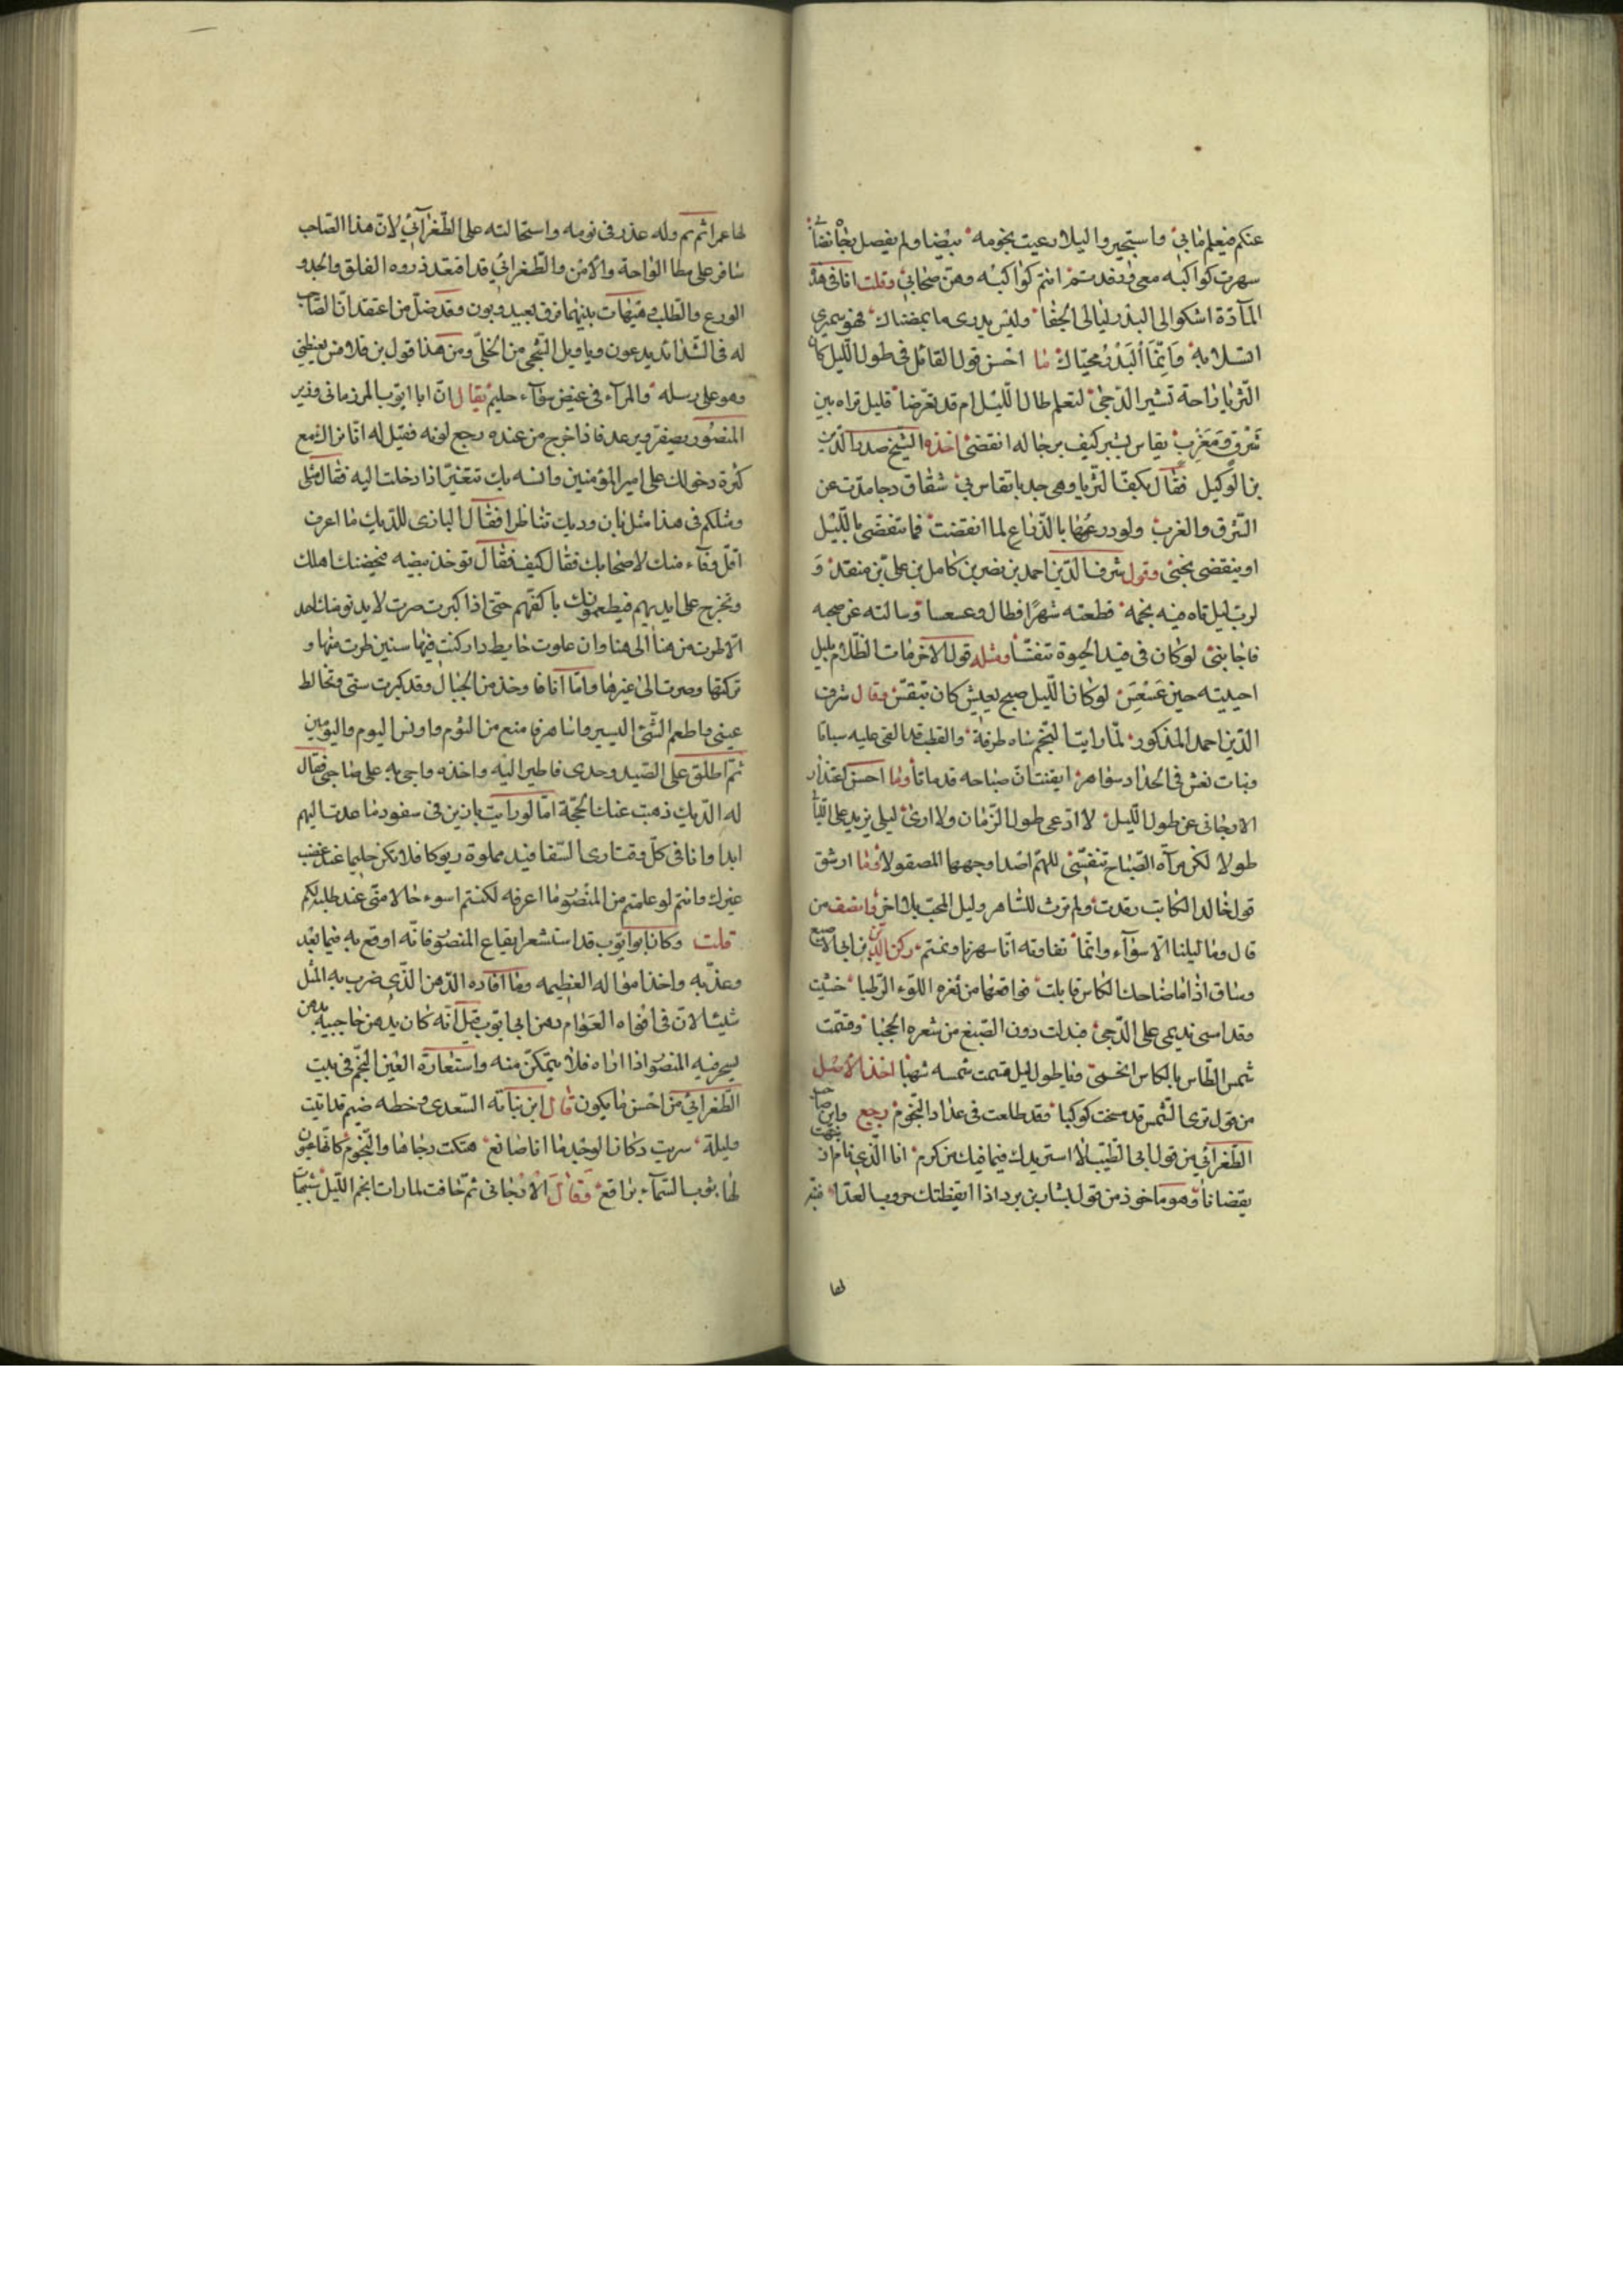 عنكم فيعلم مابي واستجير واليلا رعيت نجومه مبيضا ولم يفصل
سهرت كواكبه معي وقد نمتم انتم كواكبه وهن صحابي وقلت انا في هذه
المآدة اشكوا الى البدر ليالي الجفا وليس يدرى ما بمضناك فهو يمري
السلا به وانما البدر محياك ما احسن قول القائل في طول الليل كان
الثريا راحة تشبر الدجى لتعلم طال الليل ام قد تعرضا قليل تراه بين
شرق ومغرب يقاس بشبر كيف يرجا له انقضى اخذه الشيخ صدر الدين
بن الوكيل فقال بكف الثريا وهي جدبا تقاس بي شقاق دجا مدت عن
الشرق والغرب ولو درعوها بالذراع لما انقضت فما تنقضى يا لليل
او ينقضى نحبى وقول شرف الدين احمد بن نصر بن كامل بن على بن منقذ و
لرب ليل تاه فيه نجمه قطعته شهرا فطال وعسعسا وسالته عن صبحه
فاجابنى لو كان في قيد الحيوة تنفسا ومثله قول الاخر مات الظلام بليل
احييته حين عسعس لو كان الليل صبح يعيش كان تنفس وقال شرف
الدين احمد المذكور لما رايت النجم ساه طرفه والقطب قد القى عليه سباتا
وبنات نعش في الحداد سوافر ايقنت ان صباحه قد ماتا وما احسن اعتذار
الارجانى عن طول الليل لا ادعى طول الزمان ولا ارى ليلى يزيد على الليا
طولا لكن مرآة الصباح تنفسى للهم اصدا وجهها المصقولا وما ارشق
قول خالد الكاتب رقدت ولم ترث للساهر وليل المحب بلا اخر وانصف من
قال وما ليلنا الا سوآء وانما تفاوته انا سهرنا ونمتم ركن الدين بن ابى الاصبع
وساق اذا ما ضاحك الكاس قابلت فواقعها من ثغره اللؤلؤ الرطبا خشيت
وقد اسى نديمى على الدجى فبدلت دون الصبغ من شعره الحجبا وقسمت
شمس الطاس بالكاس انجسى فيا طول ليل قسمت شمسه شهبا اخذ الاصل
من قول ترى الشمس قد مسخت كوكبا وقد طلعت في عداد النجوم رجع واين صاحب
الطغرائي من قول ابى الطيب لا استزيدك فيما فيك من كرم انا الذى نام ان نبهت
يقضانا وهو ماخوذ من قول بشار بن برد اذا ايقظتك حروب العدا فنبه
لها
لها عمرا ثم نم وله عذر في نومه واستحالته على الطغرآئي لان هذا الصاحب
سافر على مطا الواحة والامن والطغرائي قد اقتعد ذروه القلق والجد و
الورع والطلب وهيهات بينهما فرق بعيد وبون وقد ضل من اعتقد ان الصاحب
له في الشدائد يدعون ويا ويل الشجي من الخلي ومن هذا قول بن قلاقس يغيظني
وهو على رسله والمرء في غيض سوآء حليم يقال ان ابا ايوب المرزمانى وزير
المنصور يصفر ويرعد فاذا خرج من عنده رجع لونه فقيل له انا نراك مع
كثرة دخولك على امير المؤمنين وانسه بك تتغير اذا دخلت اليه فقال مثلى
ومثلكم في هذا مثل باز وديك تناظرا فقال البازى للديك ما اعرف
اقل وفآء منك لاصحابك فقال كيف فقال تؤخذ بيضه فيحضنك اهلك
وتخرج على ايديهم فيطعمونك باكفهم حتى اذا كبرت صرت لا يدنو منك احد
الا طرت من هنا الى هنا وان علوت حايط دار كنت فيها سنين طرت منها و
تركتها وصرت الى غيرها واما انا فاوخذ من الجبال وقد كبرت سنى فتخاط
عينى واطعم الشئ اليسير واساهر فامنع من النوم واونس اليوم واليومين
ثم اطلق على الصيد وحدى فاطير اليه واخذه واجى به على صاحبى فقال
له الديك ذهبت عنك الحجة اما لو رايت بازين في سفود ما عدت اليهم
ابدا وانا في كل وقت ارى السفافيد مملوة ديوكا فلا تكن حليما عند غضب
غيرك وانتم لو علمتم من المنصور ما اعرفه لكنتم اسوء حالا منى عند طلبه لكم
قلت وكان ابو ايوب قد استشعر ايقاع المنصور فانه اوقع به فيما بعد
وعذبه واخذ امواله العظيمه وما افاده الدهن الذى ضرب به المثل
شيئا لان في افواه العوام دهن ابى ايوب قيل انه كان يدهن حاجبيه بدهن
يسحر فيه المنصور اذا اراه فلا يتمكن منه واستعارة العين للنجم في بيت
الطغرائي من احسن ما يكون قال ابن نباته السعدى وخطه ضيم قد ابيت
وليلة سريت وكان الوجد ما انا صانع هتكت دجاها والنجوم كانها عيون
لها بثوب السمآء براقع وقال الارجانى ثم خافت لما رات انجم الليل شبيهات